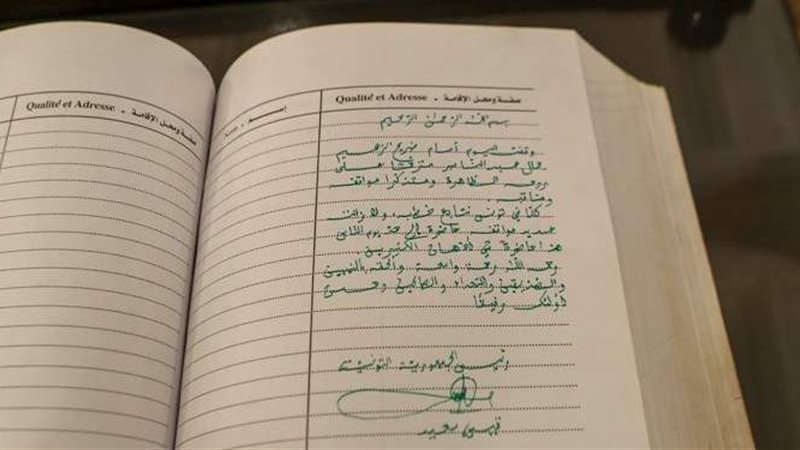 Qualité et Adresse - صفة ومحل الإقامة
إســم
Qualité et Adresse - صفة ومحل الإقامة
بسم الله الرحمان الرحيم
وقفت اليوم أمام ضريح الزعيم
جمال عبد الناصر مترحّما على
روحه الطاهرة ومتذكرا مواقفه
ومناقبه.
كنّا في تونس نتابع خطبه، ولا زالت
عديد مواقفه حاضرة إلى حد يوم الناس
هذا حاضرة في أذهان الكثيرين
رحمه الله رحمة واسعة وألحقه بالنبيين
والصديقين والشهداء والصالحين وحسن
أولئك رفيقا
رئيس الجمهورية التونسية
قيس سعيد